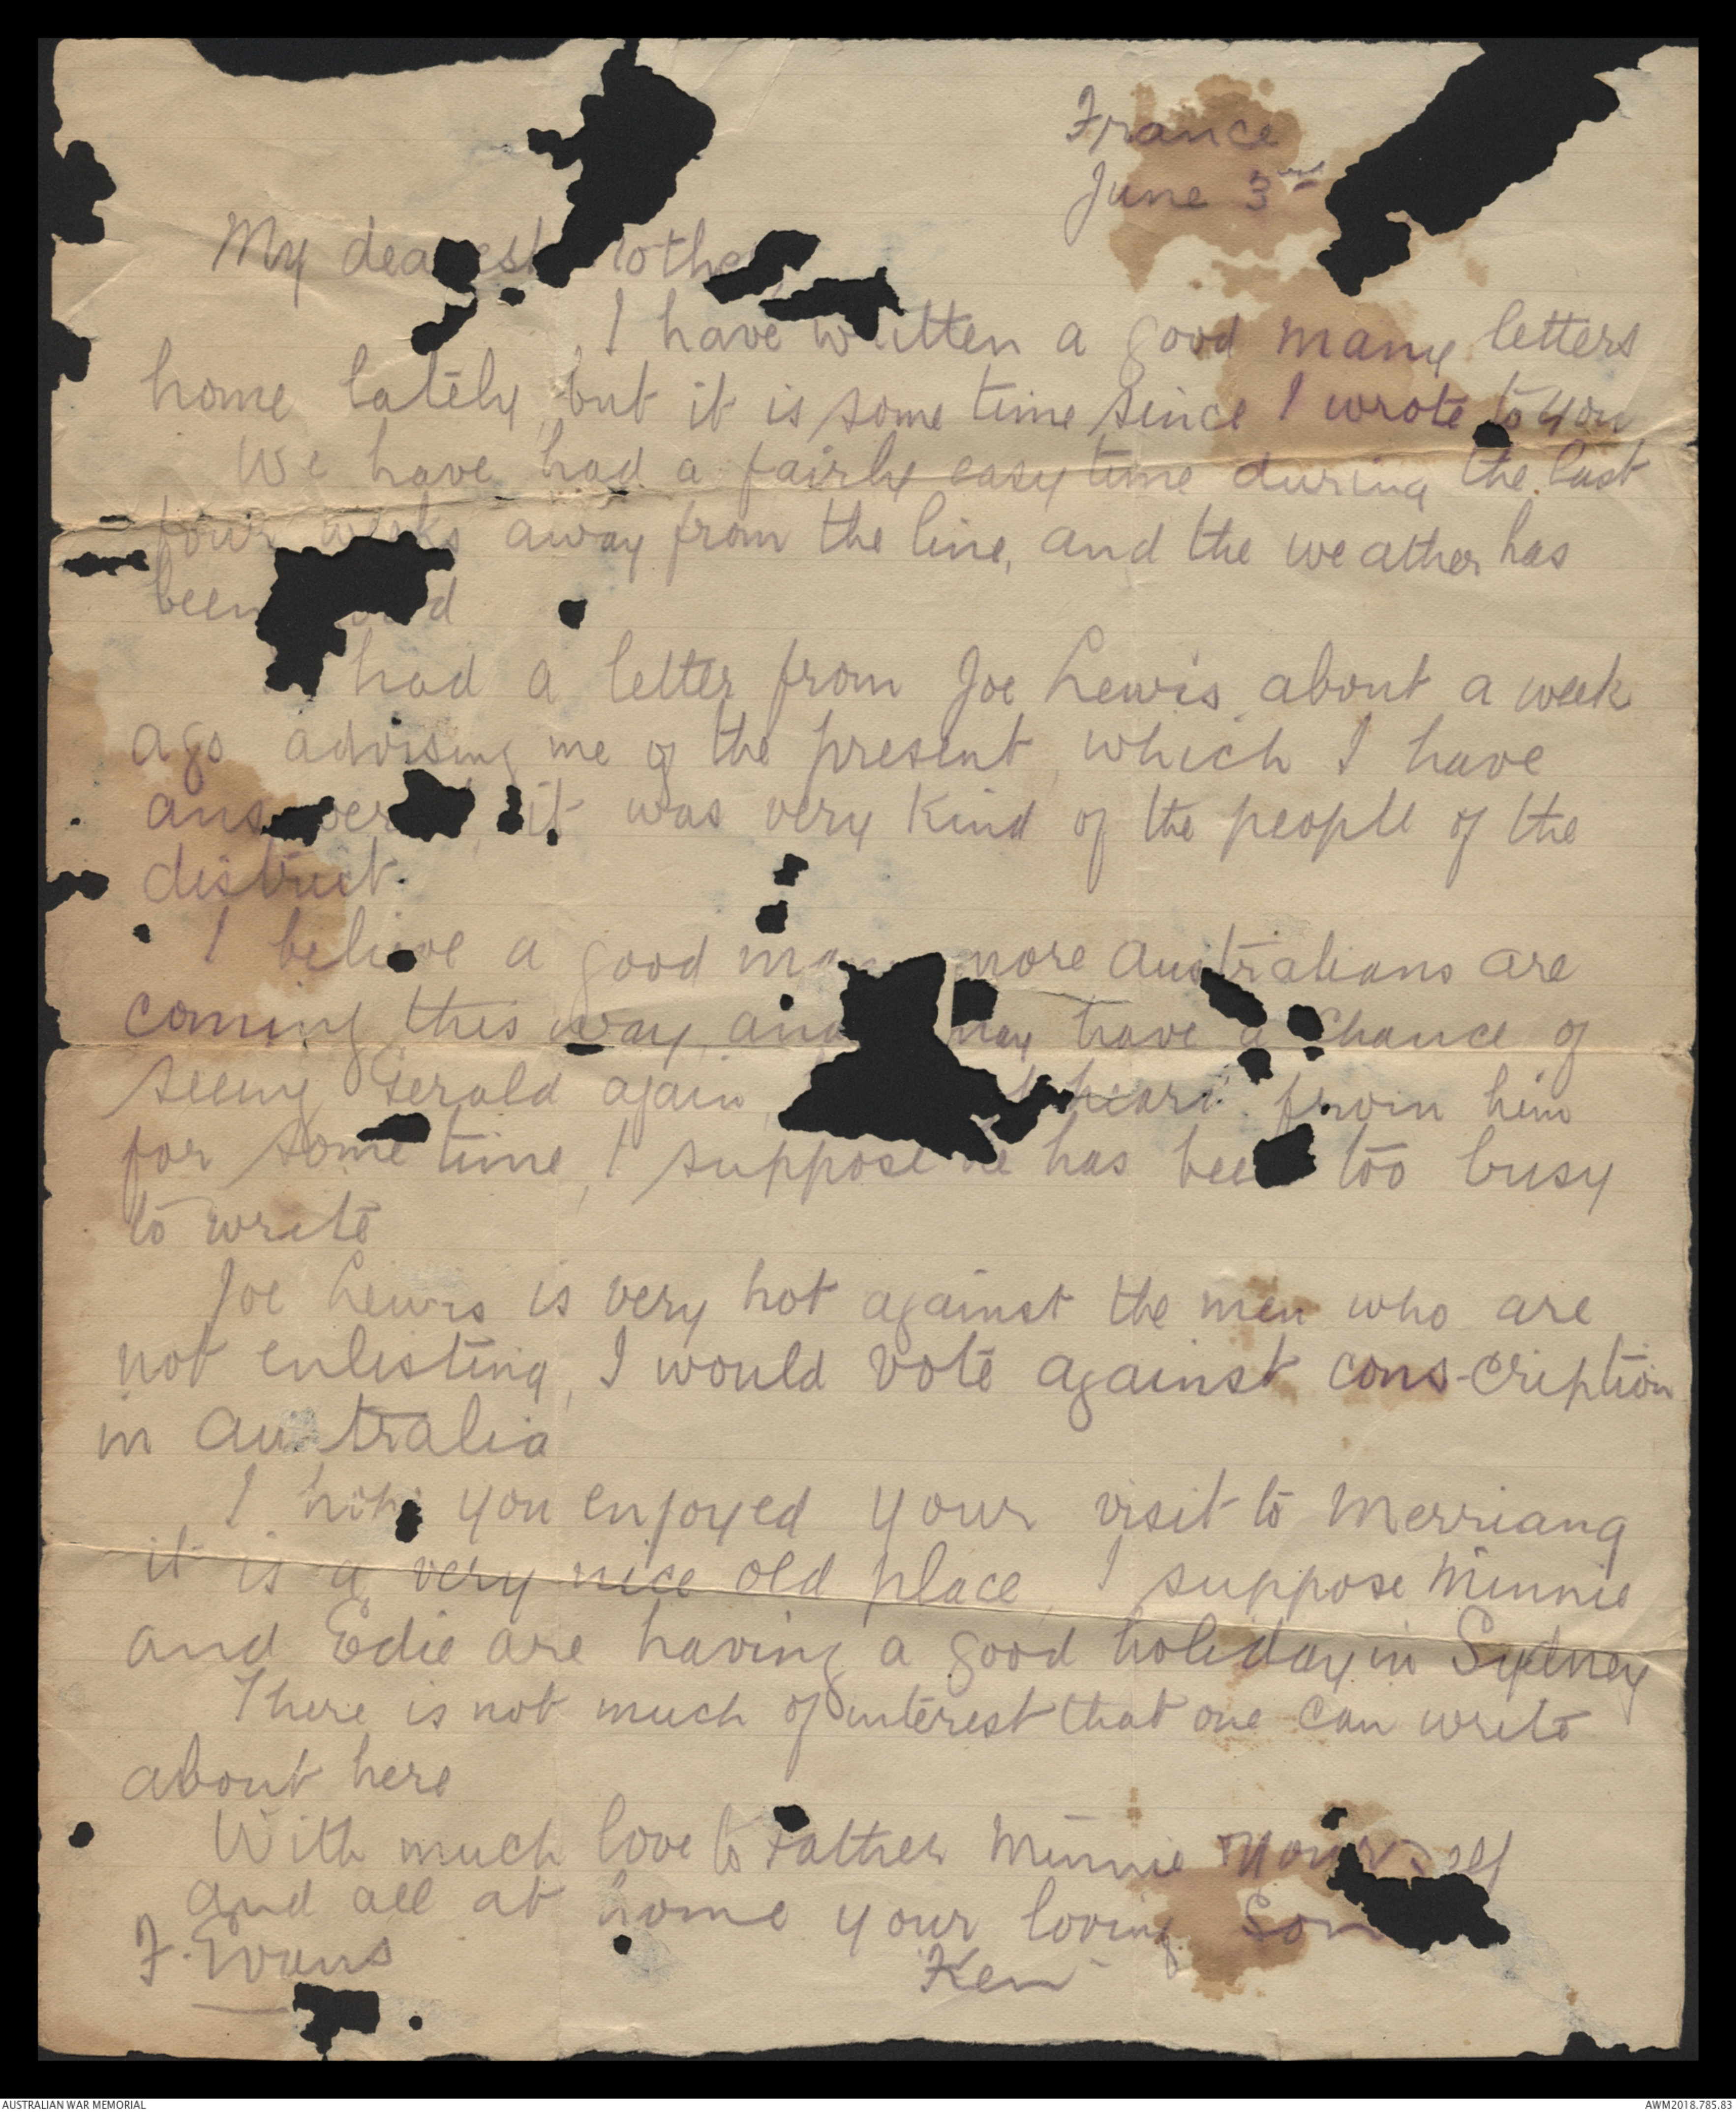 France
June 3rd
My dea est other
I have written a good many letters
home lately, but it is some time since I wrote to you
We have had a fairly easy time during the last
four weeks away from the line, and the weather has
been d
had a letter from Joe Lewis about a week
ago advising me of the present, which I have
answer it was very kind of the people of the
district.
I believe a good many more Australians are
coming this way, and may have a chance of
seeing Gerald again, heard from him
for some time, I suppose he has been too busy
to write
Joe Lewis is very hot against the men who are
not enlisting, I would vote against cons-cription
in Australia
I hope you enjoyed your visit to Merriang
it is a very nice old place, I suppose Minnie
and Edie are having a good holiday in Sydney
There is not much of interest that one can write
about here
With much love to Father Minnie yourself
and all at home your loving Son
F. Evans Ken
AUSTRALIAN WAR MEMORIAL AWM2018.785.83